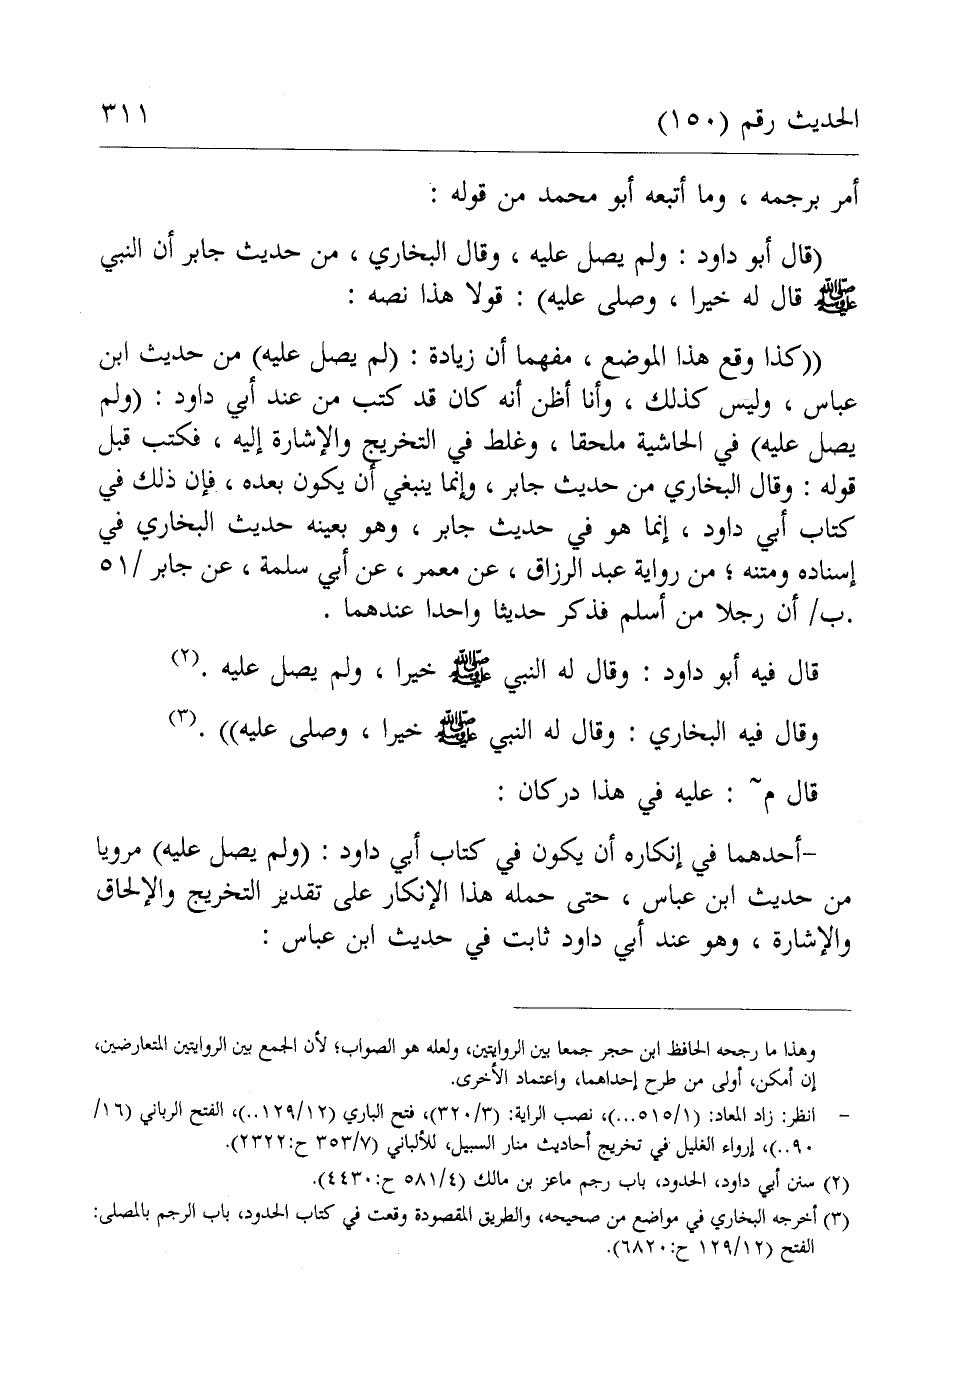 الحديث رقم (١٥٠) ٣١١
أمر برجمه ، وما أتبعه أبو محمد من قوله :
(قال أبو داود : ولم يصل عليه ، وقال البخاري ، من حديث جابر أن النبي
ﷺ قال له خيرا ، وصلى عليه) : قولا هذا نصه :
((كذا وقع هذا الموضع ، مفهما أن زيادة : (لم يصل عليه) من حديث ابن
عباس ، وليس كذلك ، وأنا أظن أنه كان قد كتب من عند أبي داود : (ولم
يصل عليه) في الحاشية ملحقا ، وغلط في التخريج والإشارة إليه ، فكتب قبل
قوله : وقال البخاري من حديث جابر ، وإنما ينبغي أن يكون بعده ، فإن ذلك في
كتاب أبي داود ، إنما هو في حديث جابر ، وهو بعينه حديث البخاري في
إسناده ومتنه ؛ من رواية عبد الرزاق ، عن معمر ، عن أبي سلمة ، عن جابر /٥١
.ب/ أن رجلا من أسلم فذكر حديثا واحدا عندهما .
قال فيه أبو داود : وقال له النبي ﷺ خيرا ، ولم يصل عليه .(٢)
وقال فيه البخاري : وقال له النبي ﷺ خيرا ، وصلى عليه)) .(٣)
قال م~ : عليه في هذا دركان :
-أحدهما في إنكاره أن يكون في كتاب أبي داود : (ولم يصل عليه) مرويا
من حديث ابن عباس ، حتى حمله هذا الإنكار على تقدير التخريج والإلحاق
والإشارة ، وهو عند أبي داود ثابت في حديث ابن عباس :
وهذا ما رجحه الحافظ ابن حجر جمعا بين الروايتين، ولعله هو الصواب؛ لأن الجمع بين الروايتين المتعارضين،
إن أمكن، أولى من طرح إحداهما، واعتماد الأخرى.
- انظر: زاد المعاد: (٥١٥/١...)، نصب الراية: (٣٢٠/٣)، فتح الباري (١٢٩/١٢..)، الفتح الرباني (١٦/
٩٠..)، إرواء الغليل في تخريج أحاديث منار السبيل، للألباني (٣٥٣/٧ ح:٢٣٢٢).
(٢) سنن أبي داود، الحدود، باب رجم ماعز بن مالك (٥٨١/٤ ح:٤٤٣٠).
(٣) أخرجه البخاري في مواضع من صحيحه، والطريق المقصودة وقعت في كتاب الحدود، باب الرجم بالمصلى:
الفتح (١٢٩/١٢ ح:٦٨٢٠).